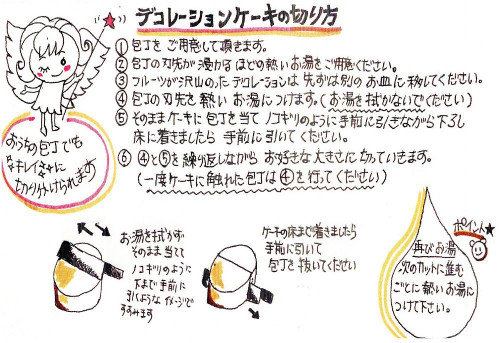 デコレーションケーキの切り方
① 包丁を ご用意して頂きます。
② 包丁の刃先が浸かる ほどの熱い お湯を ご用意ください。
③ フルーツが沢山のった デコレーションは 先ずは別の お皿に 移してください。
④ 包丁の刃先を 熱い お湯につけます。(お湯を拭かないでください)
⑤ そのままケーキに 包丁を 当て ノコギリのように 手前に引きながら下ろし
床に着きましたら 手前に 引いてください。
⑥ ④と⑤を 繰り返しながら お好きな大きさに切っていきます。
(一度ケーキに触れた包丁は④を行ってください)
おうちの包丁でも
キレイに
切り分けられます
お湯を拭かず
そのまま 当てて
ノコギリのように
下まで手前に
引くような イメージで
すすみます
ケーキの床まで着きましたら
手前に引いて
包丁を 抜いてください
ポイント★
再びお湯
次のカットに進む
ごとに 熱い お湯に
つけて下さい。